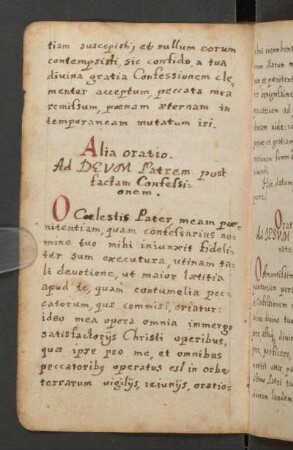 tiam suscepisti, et nullum eorum
contempsisti, sic confido, a tua
divina gratia Confessionem cle
menter acceptum, peccata mea
remissum, pœnam æternam in
temporaneam mutatum iri.
Alia oratio.
Ad DEUM Patrem post
factam Confessi-
onem.
O Cœlestis Pater, meam pœ-
nitentiam, quam confessarius no-
mine tuo mihi iniunxit fideli-
ter sum executura, utinam ta-
li devotione, ut maior lætitia
apud te, quam contumelia pec-
catorum, quæ commisi, oriatur:
ideo mea opera omnia immergo
satisfactorijs Christi operibus,
quæ ipse pro me, et omnibus
peccatoribus operatus est in orbe
terrarum vigilijs, ieiunijs, oratio-